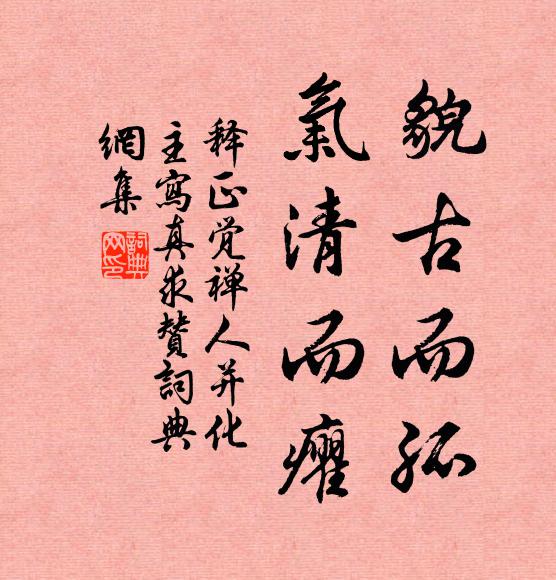 貌古而孤
氣清而癯
释正觉禅人并化
主寫真求贊詞典
網集
詞典網印